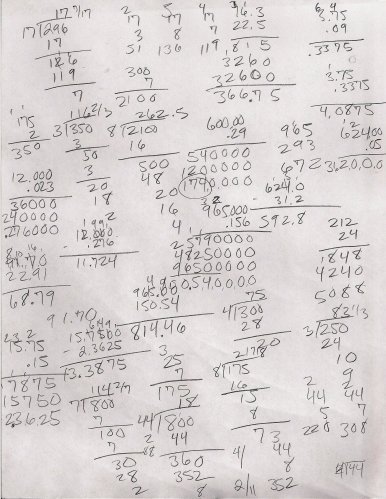 17 7/17 2 5 4 16.3 6 4
17|296 17 47 17 22.5 3.75
17 3 8 7 815 .09
126 51 136 119 3260 .3375
119 300 32600 3.75
7 7 366.75 .3375
2100 4.0875
175 116 2/3 262.5
2 3|350 8|2100 600.00 965 62400
350 3 16 .29 293 .05
50 500 540000 672 3120.00
12.000 3 48 1200000
.023 20 20 174.0000 624.0
36000 18 16 965000 31.2
240000 2 4 .156 592.8 212
.276000 12.000 5790000 24
.276 48250000 848
91.70 11.724 96500000 4240
22.91 540.00 5088
68.79 965.00 75
91.70 150.54 4|300 83 1/3
15.7500 814.46 28 3|250
15.75 2.3625 3 20 24
.15 13.3875 25 10
7875 7 8|175 9
15750 114 2/7 175 16 2 2
2.3625 7|800 18 15 44 44
7 44|800 8 5 7
100 2 44 73 220 308
7 88 360 44
30 352 8
28 8 2/11 352 4|44
2